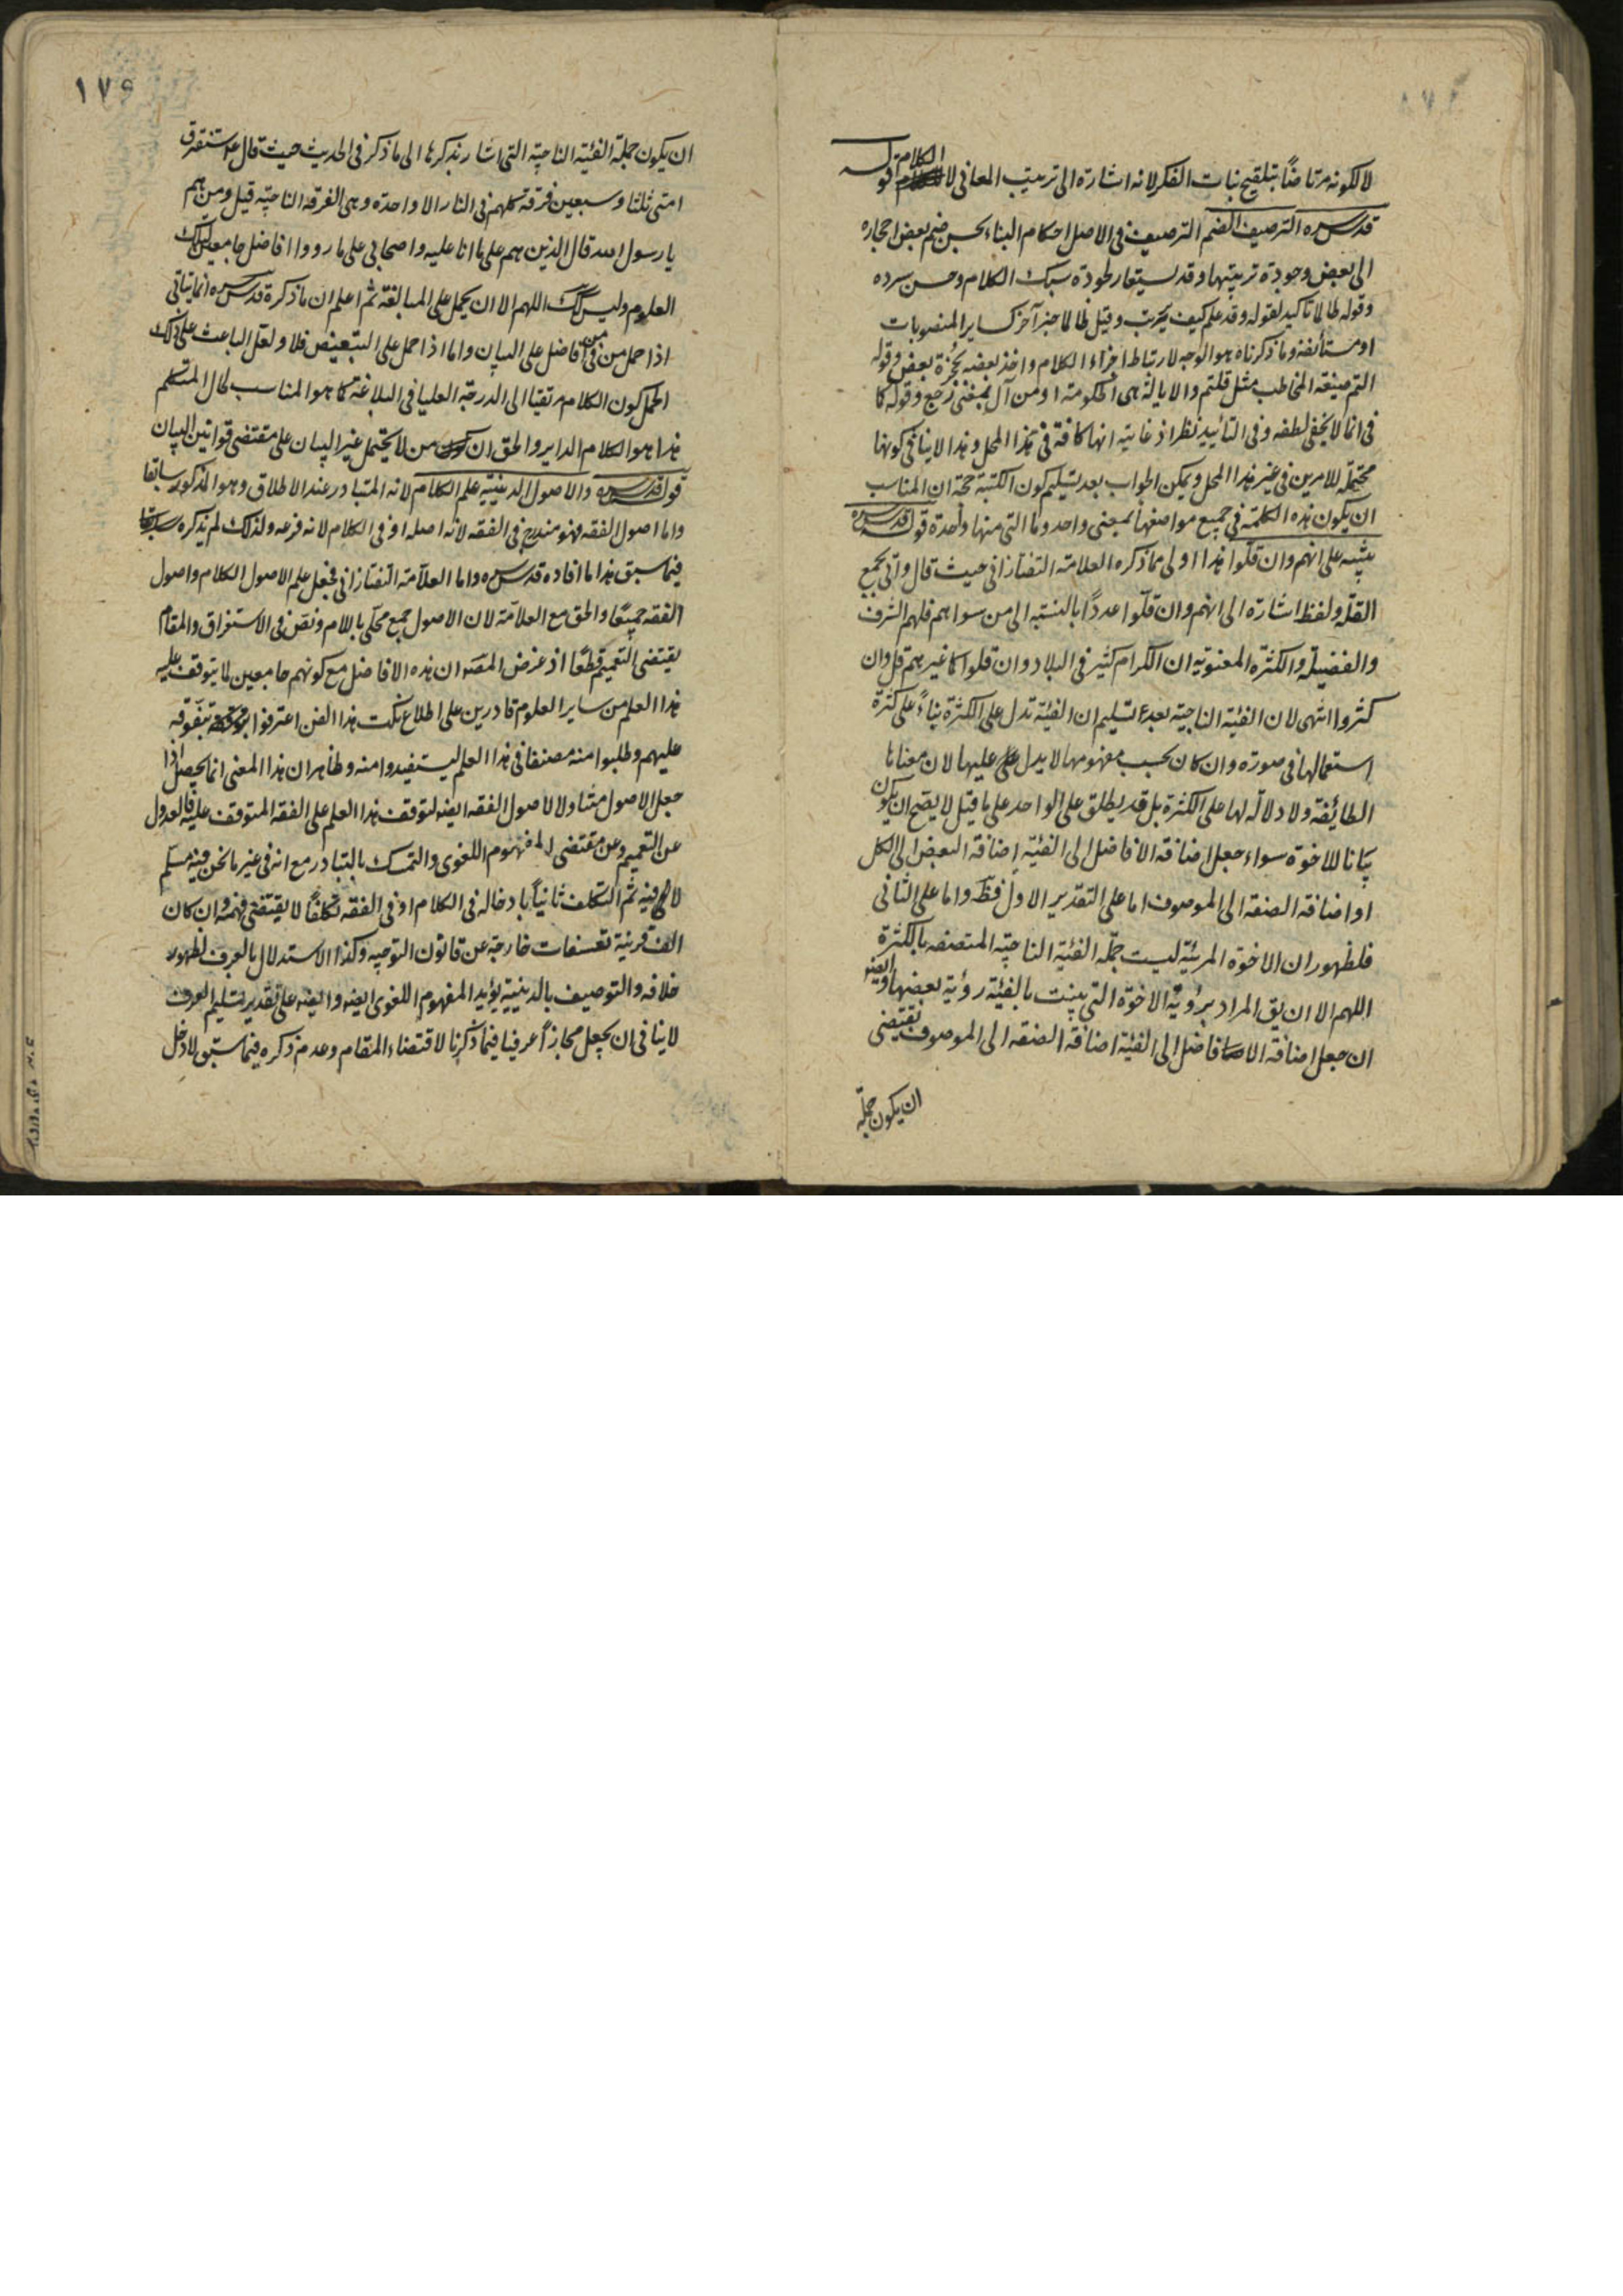 لا لكونه مرتاضًا بتلقيح نبات الفكر لانه اشارة الى ترتيب المعانى لا الكلام قوله
قدس سره الترصيف الضم الترصيف فى الاصل احكام البناء بحسن ضم بعض احجاره
الى بعض وجودة تربيتها وقد يستعار لجودة سبك الكلام وحسن سرده
وقوله طالا تاكيد لقوله وقد علم كيف يحرب وقيل طالا خبر آخر كساير المنصوبات
او مستأنفة وما ذكرناه هو الوجه لارتباط اجزاء الكلام واخذ بعضه بحجزة بعض وقوله
التم صيغة المخاطب مثل قلتم والايالة هى الحكومة او من آل بمعنى رجع وقوله كا
فى انما لا يخفى لطفه وفى التأييد نظر اذ غايته انها كافة فى هذا المحل وهذا لا ينافى كونها
محتملة للامرين فى غير هذا المحل ويمكن الجواب بعد تسليم كون الكتبة حجة ان المناسب
ان يكون هذه الكلمة فى جميع مواضعها بمعنى واحد وما التى منها واحدة قوله قدس سره
ينبيه على انهم وان قلّوا هذا اولى مما ذكره العلامة التفتازانى حيث قال واتى بجمع
القلّة ولفظ اشارة الى انهم وان قلّوا عددًا بالنسبة الى من سواهم فلهم الشرف
والفضيلة والكثرة المعنوية ان الكرام كثير فى البلاد وان قلوا كما غيرهم قل وان
كثروا انتهى لان الفئية الناجية بعد تسليم ان الفئية تدل على الكثرة بناءً على كثرة
استعمالها فى صورة وان كان بحسب مفهومها لا يدل على عليها لان معناها
الطائفة ولا دلالة لها على الكثرة بل قد يطلق على الواحد على ما قيل لا يصح ان يكون
بيانا للاخوة سواء جعل اضافة الافاضل الى الفئية اضافة البعض الى الكل
او اضافة الصفة الى الموصوف اما على التقدير الاول فظّ واما على الثانى
فلظهور ان الاخوة المرئية ليست جملة الفئية الناجية المتصفة بالكثرة
اللهم الا ان يق المراد برؤية الاخوة التى بينت بالفئية رؤية بعضها وايضه
ان جعل اضافة الافاضل الى الفئية اضافة الصفة الى الموصوف يقتضى
ان يكون جملة
١٧٩
ان يكون جملة الفئية الناجية التى اشار بذكرها الى ما ذكر فى الحديث حيث قال عم ستفترق
امتى ثلثا وسبعين فرقة كلهم فى النار الا واحدة وهى الفرقة الناجية قيل ومن هم
يا رسول الله قال الذين هم على ما انا عليه واصحابى على ما رووا افاضل جامعين لتلك
العلوم وليس كك اللهم الا ان يحمل على المبالغة ثم اعلم ان ما ذكره قدس سره انما يتأتى
اذا حمل من فى من افاضل على البيان واما اذا حمل على التبعيض فلا ولعل الباعث على ذلك
الحمل كون الكلام مرتقيا الى الدرجة العليا فى البلاغة كما هو المناسب لحال المتكلم
هذا هو الكلام الداير والحق ان من لا يحتمل غير البيان على مقتضى قوانين البيان
قوله قدس سره والاصول الدينية علم الكلام لانه المتبادر عند الاطلاق وهو المذكور سابقا
واما اصول الفقه فهو مندرج فى الفقه لانه اصله او فى الكلام لانه فرعه ولذلك لم يذكره
فيما سبق هذا ما افاده قدس سره واما العلّامة التفتازانى فجعل علم الاصول الكلام واصول
الفقه جميعًا والحق مع العلّامة لان الاصول جمع محلّى باللام ونص فى الاستغراق والمقام
يقتضى التعميم قطعًا اذ غرض المصّ ان هذه الافاضل مع كونهم جامعين لما يتوقف عليه
هذا العلم من ساير العلوم قادرين على اطلاع نكت هذا الفن اعترفوا بتفوقه
عليهم وطلبوا منه مصنفا فى هذا العلم ليستفيدوا منه وظاهر ان هذا المعنى انما يحصل اذا
جعل الاصول متناولا لاصول الفقه ايضه لتوقف هذا العلم على الفقه المتوقف عليه فالعدول
عن التعميم وعن مقتضى المفهوم اللغوى والتمسك بالتبادر مع انه فى غير ما نحن فيه مسلم
لا فيه ثم التكلف ثانيًا بادخاله فى الكلام او فى الفقه تكلفًا لا يقتضى فهمه وان كان
الف قرينة تعسفات خارجة عن قانون التوجيه وكذا الاستدلال بالعرف لظهور
خلافه والتوصيف بالدينية يؤيد المفهوم اللغوى ايضه وايضه على تقدير تسليم العرف
لا ينافى ان يجعل مجازًا عرفيا فيما ذكرنا لاقتضاء المقام وعدم ذكره فيما سبق لا دخل